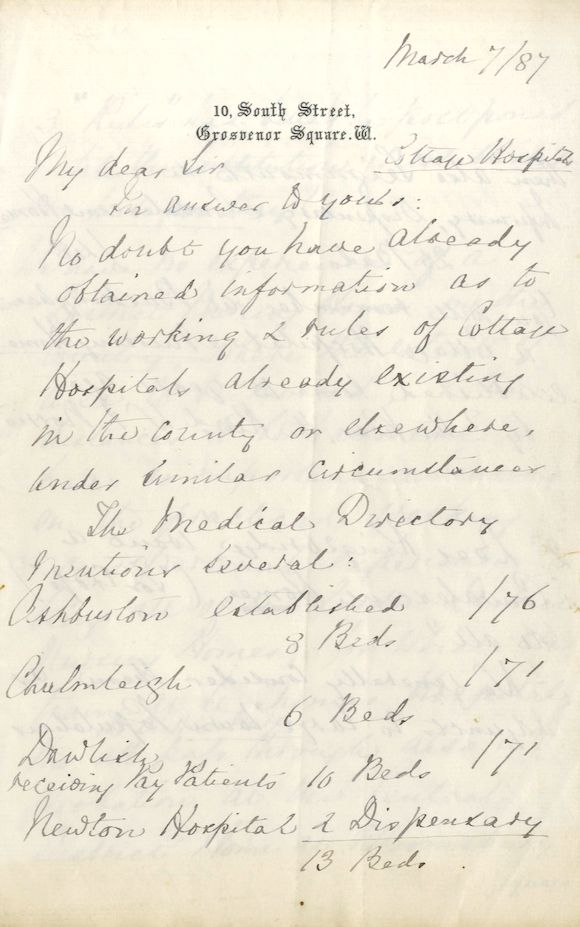 March 7/87
10, South Street,
Grosvenor Square. W.
My dear Sir Cottage Hospitals
In answer to yours:
No doubt you have already
obtained information as to
the working & rules of Cottage
Hospitals already existing
in the county or elsewhere,
under similar circumstances
The Medical Directory
mentions several:
Ashburton established /76
8 Beds
Chulmleigh /71
6 Beds
Dawlish /71
receiving Pay Patients 10 Beds
Newton Hospital & Dispensary
13 Beds.